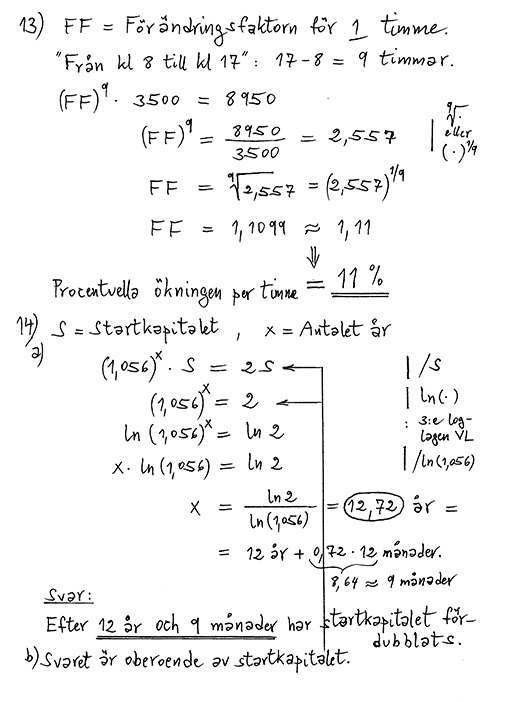 13) FF = Förändringsfaktorn för 1 timme.
"Från kl 8 till kl 17": 17-8 = 9 timmar.
(FF)⁹ · 3500 = 8950
(FF)⁹ = 8950/3500 = 2,557 | ⁹√· eller (·)^1/9
FF = ⁹√2,557 = (2,557)^1/9
FF = 1,1099 ≈ 1,11
⇓
Procentuella ökningen per timme = 11 %
14) S = Startkapitalet , x = Antalet år
a)
(1,056)^x · S = 2S | /S
(1,056)^x = 2 | ln(·)
ln (1,056)^x = ln 2 : 3:e log-lagen VL
x · ln (1,056) = ln 2 | /ln(1,056)
x = ln 2/ln(1,056) = 12,72 år =
= 12 år + 0,72 · 12 månader.
8,64 ≈ 9 månader
Svar:
Efter 12 år och 9 månader har startkapitalet för-
dubblats.
b) Svaret är oberoende av startkapitalet.